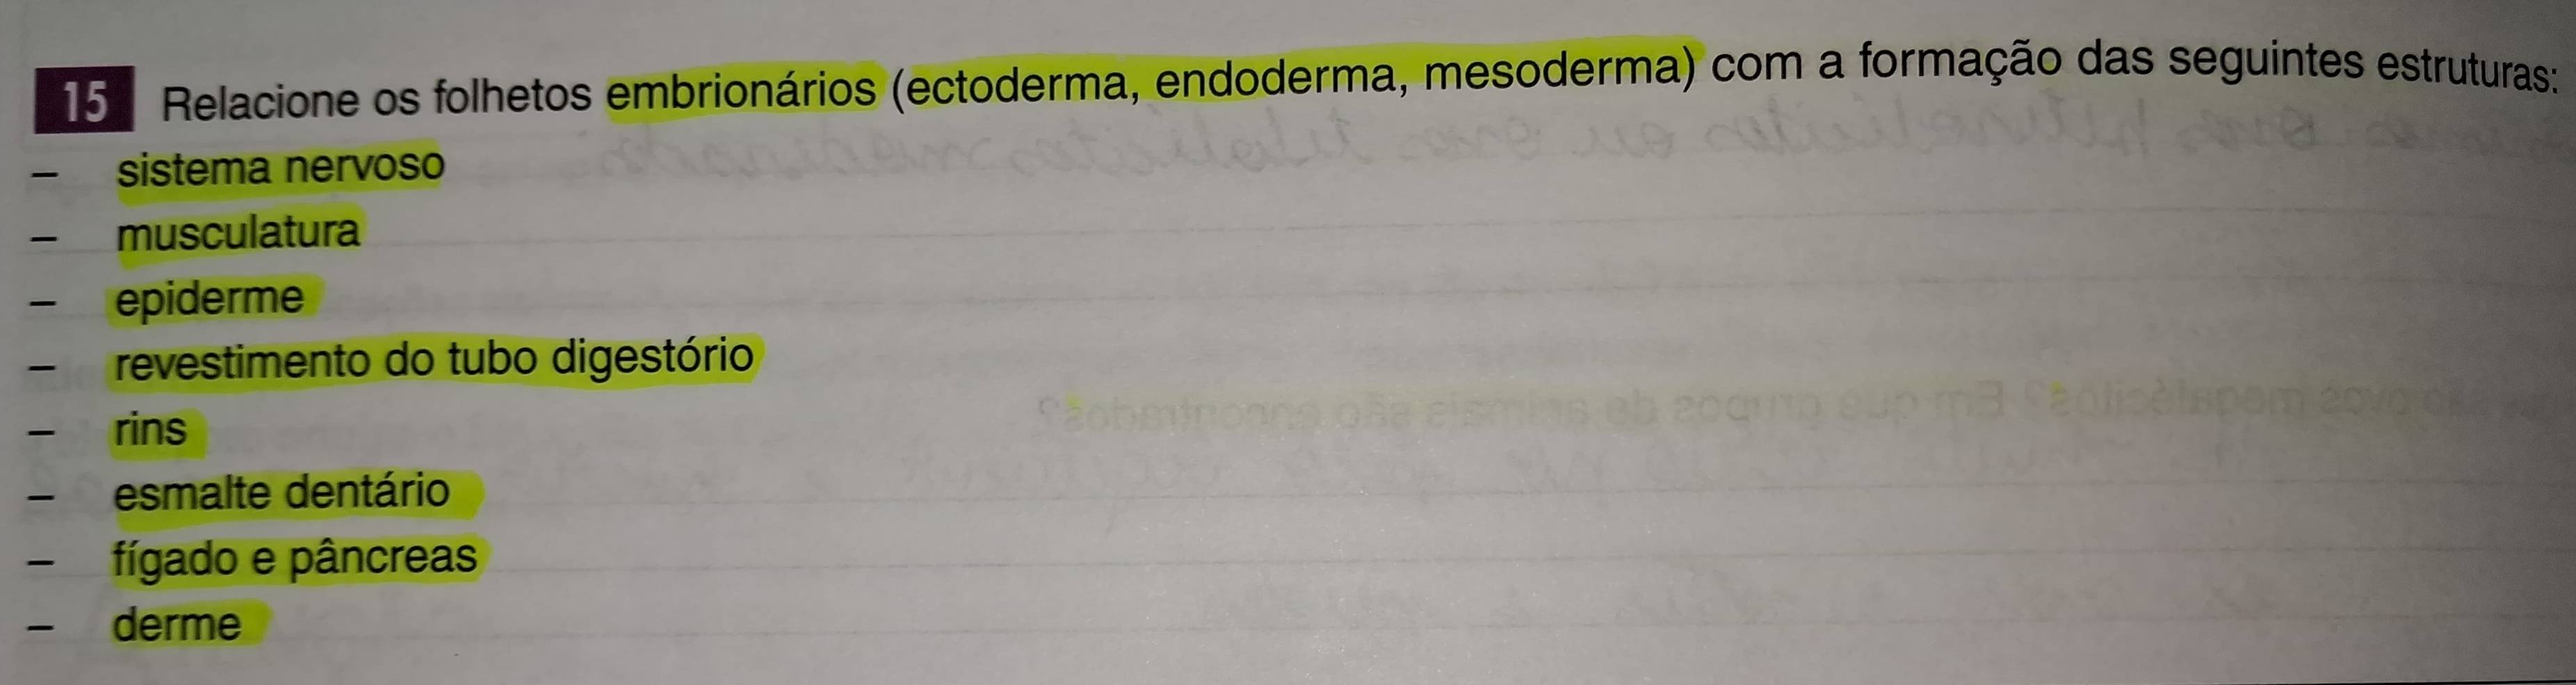 15 Relacione os folhetos embrionários (ectoderma, endoderma, mesoderma) com a formação das seguintes estruturas:
– sistema nervoso
– musculatura
– epiderme
– revestimento do tubo digestório
– rins
– esmalte dentário
– fígado e pâncreas
– derme